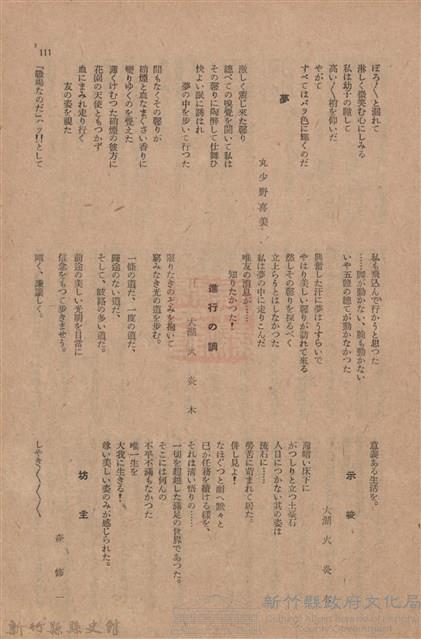 111
ぽろ〱と濡れて
淋しく微笑む心にしみる
私は幼子の瞳して
高い〱梢を仰いだ
やがて
すべてはバッ色に輝くのだ
夢
丸少野喜美
激しく薫じ来た馨り
総べての嗅覚を開いて私は
その馨りに陶酔して仕舞ひ
快よい眠に誘はれ
夢の中を歩いて行つた
間もなくその馨りが
硝煙と血なまぐさい香りに
変りゆくのを覚えた
薄くけむつた硝煙の彼方に
花園の天使ともつかず
血にまみれ走り行く
友の姿を視た
『戦場なのだ』ハッ!!として
私も飛込んで行かうと思つた
……脚が動かない、腕も動かない
いや五体の総てが動かなかつた
興奮した汗に夢はうすらいで
やはり美しい馨りが訪れて来る
然しその馨りを探るべく
立上らうとはしなかつた
私は夢の中に走りこんだ
唯友の消息が……
知りたかつた！
進行の譜
大湖火炎木
限りなきのぞみを抱いて
窮みなき光の道を歩む。
一條の道だ、一度の道だ、
帰途のない道だ、
そして、岐路の多い道だ。
前途の美しい光明を目当に
信念をもつて歩きませう。
剛く、謙譲しく。
意義ある生活を。
示唆
大湖火炎
薄暗い床下に
がつしりと立つ土台石
人目につかない其の姿は
流石に……
労苦に苛まれて居た。
併し見よ！
なほぐつと耐へ黙々と
己が任務を続ける様を、
それは清い悟りの……
一切を超越した満足の世界であつた。
そこには何んの
不平不満もなかつた
唯一生を
大我に生きる！
尊い美しい姿のみが感じられた。
坊主
森修一
しやき〱〱〱
新竹縣縣史館
新竹縣政府文化局